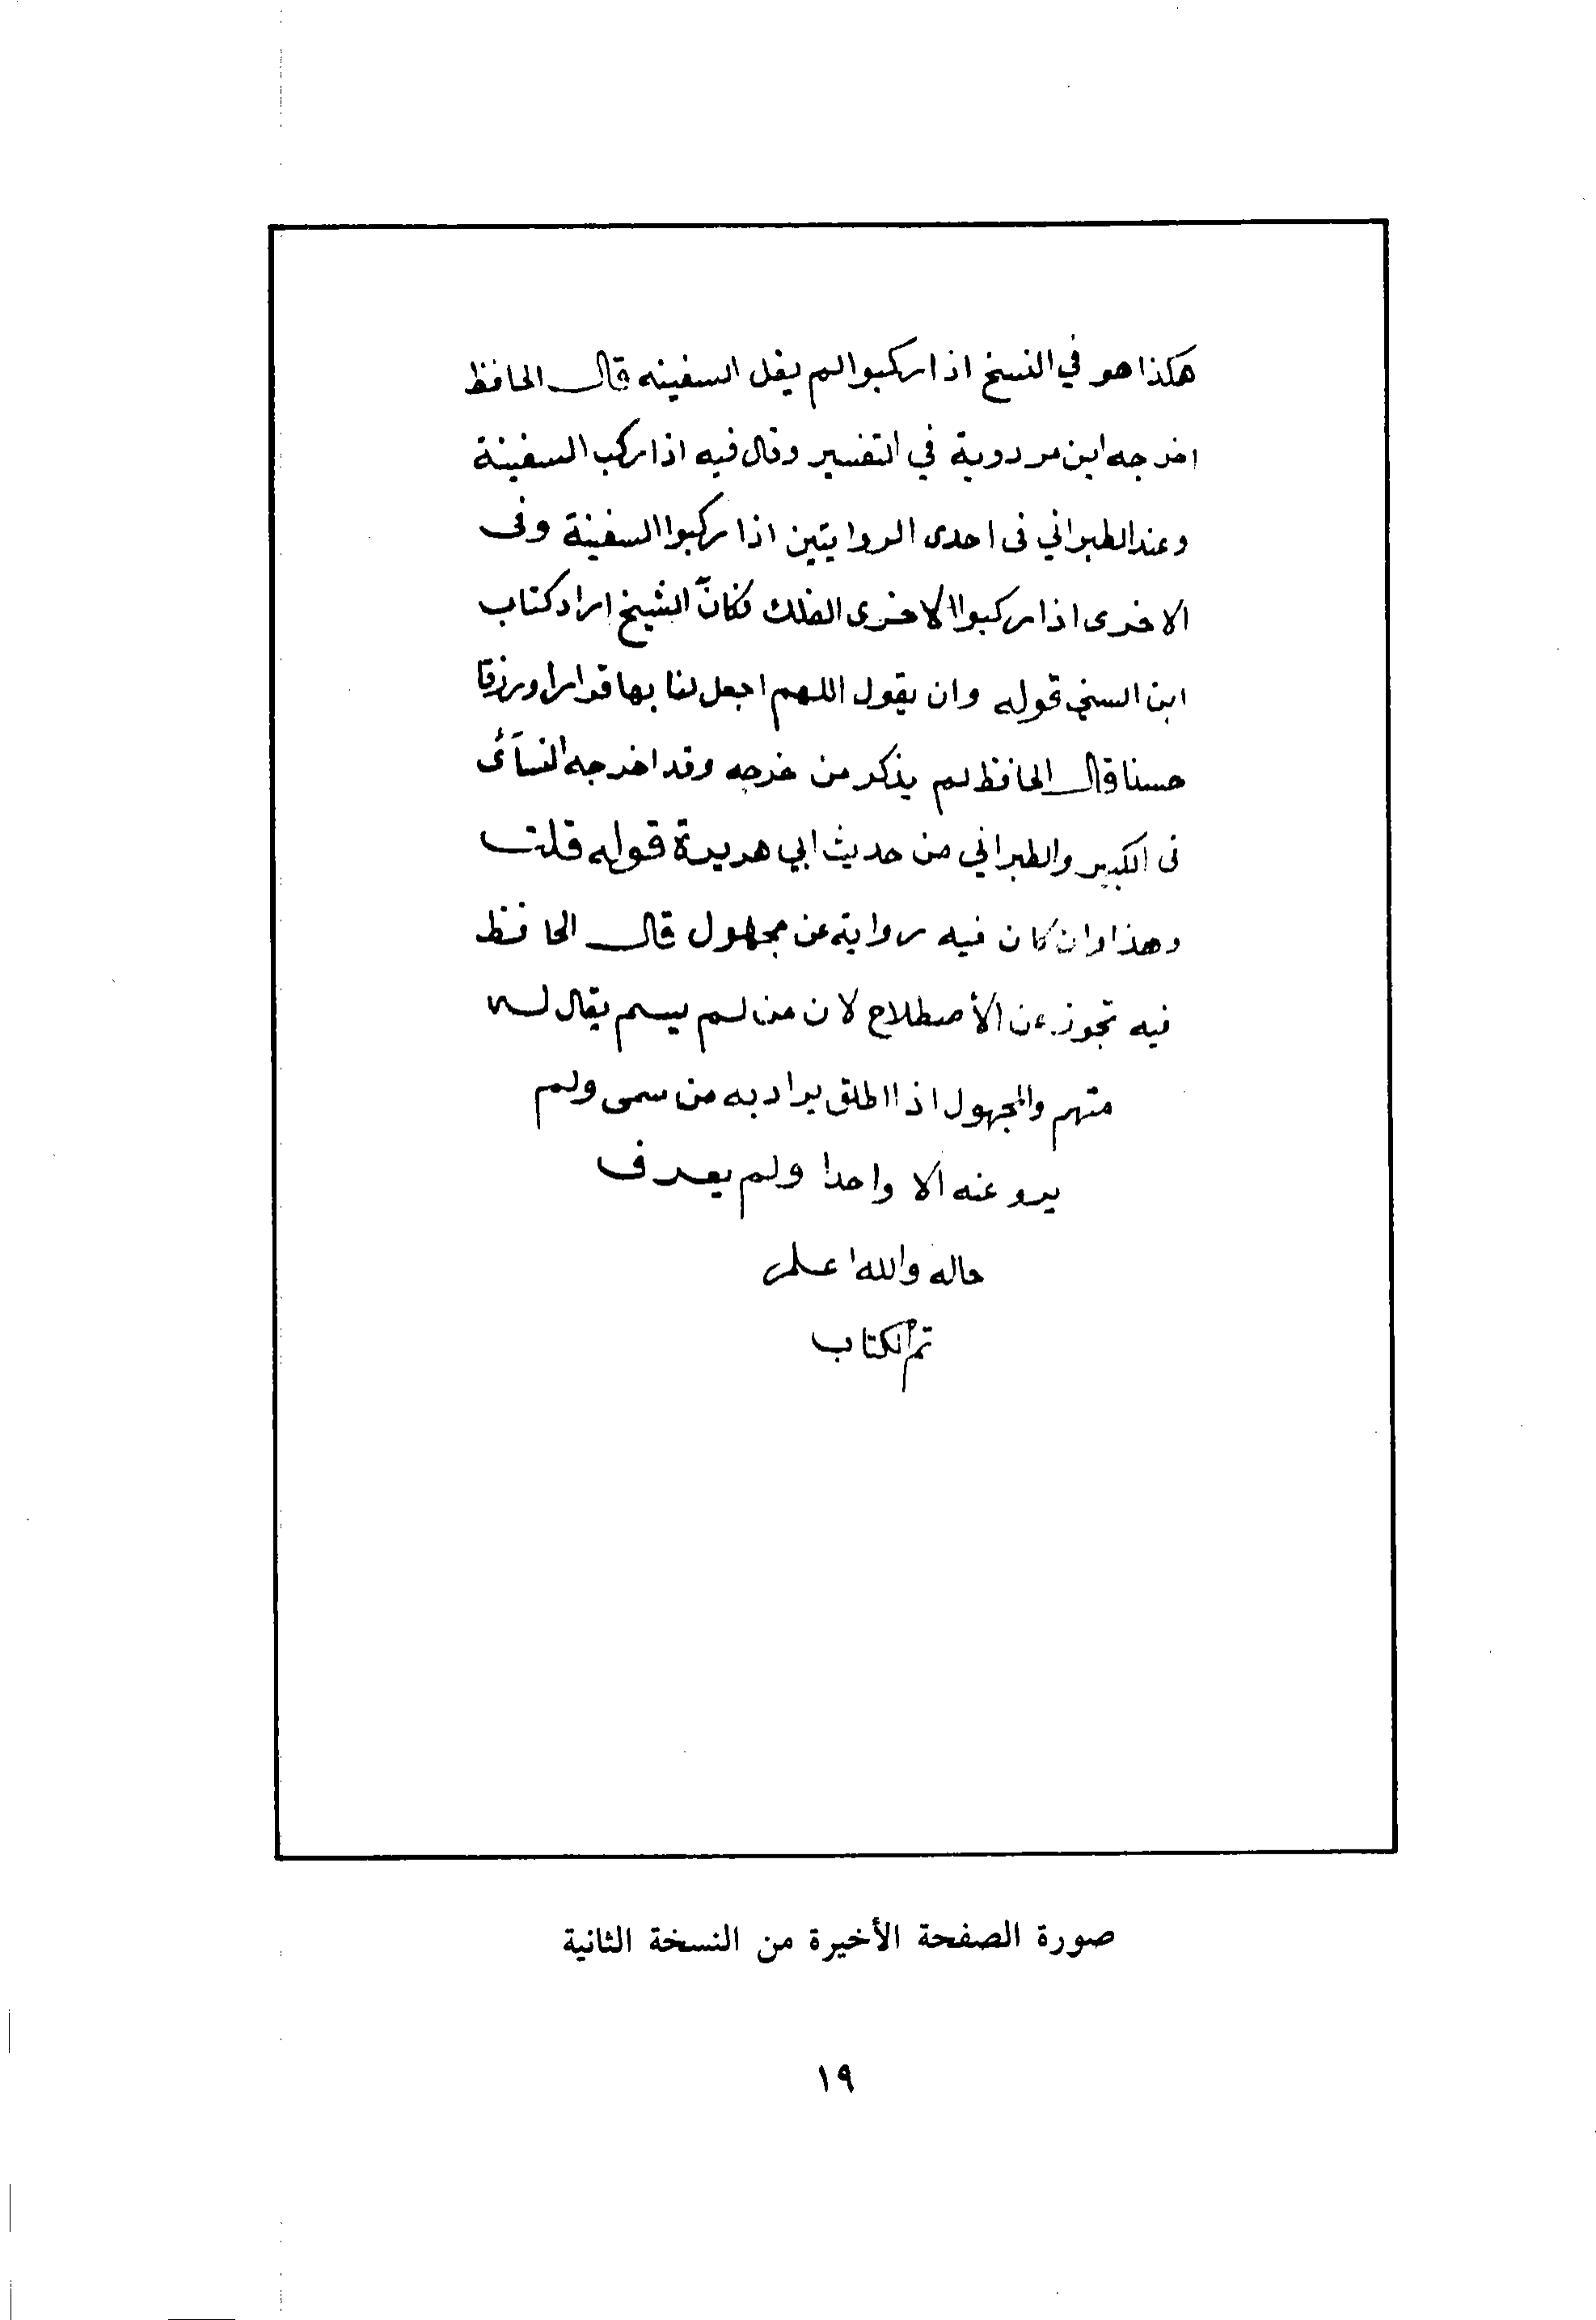 هكذا هو في النسخ اذا ركبوا لم يقل السفينه قال الحافظ
اخرجه ابن مردوية في التفسير وقال فيه اذا ركب السفينة
وعند الطبراني فى احدى الروايتين اذا ركبوا السفينة وفى
الاخرى اذا ركبوا الاخرى الفلك فكانّ الشيخ اراد كتاب
ابن السني قوله وان يقول اللهم اجعل لنا بها قرارا ورزقا
حسنا قال الحافظ لم يذكر من خرجه وقد اخرجه النسآئى
فى الكبير والطبراني من حديث ابي هريرة قوله قلت
وهذا وان كان فيه رواية عن مجهول قال الحافظ
فيه تجوز عن الأصطلاح لان من لم يسم يقال له
متهم والمجهول اذا اطلق يراد به من سمى ولم
يرو عنه الا واحدا ولم يعرف
حاله والله اعلم
تم الكتاب
صورة الصفحة الأخيرة من النسخة الثانية
١٩